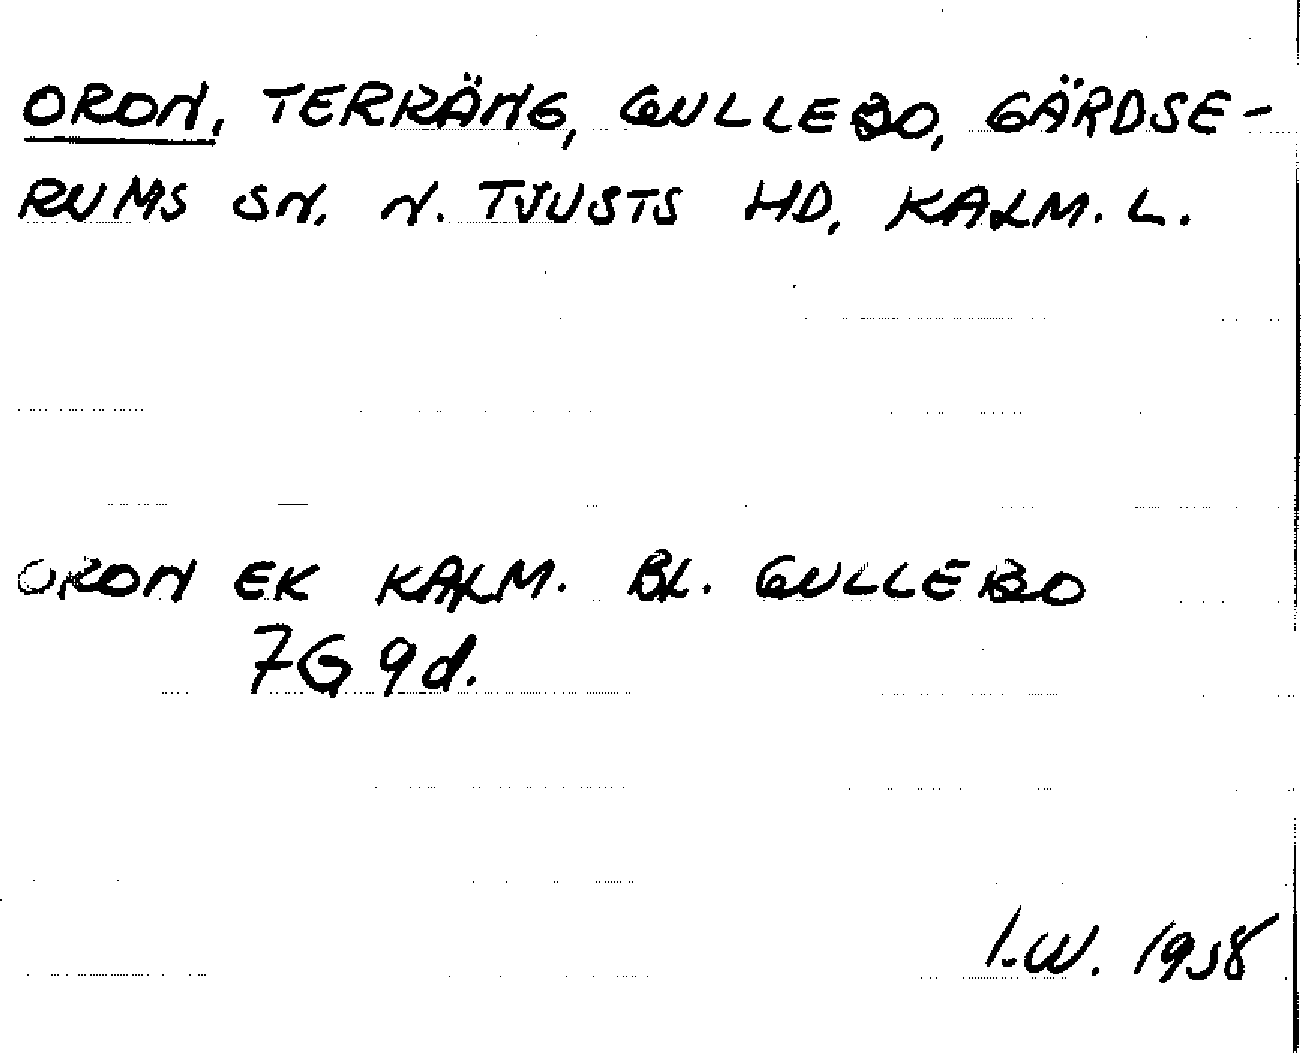 ORON, TERRÄNG, GULLEBO, GÄRDSE-
RUMS SN. N. TJUSTS HD, KALM. L.
ORON EK KALM. BL. GULLEBO
7G 9d.
I.W. 1958